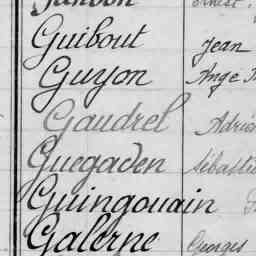 Guibout Jean
Guyon Ange
Gaudrel Adrien
Guegaden Sébastien
Guingouain
Galerne Georges